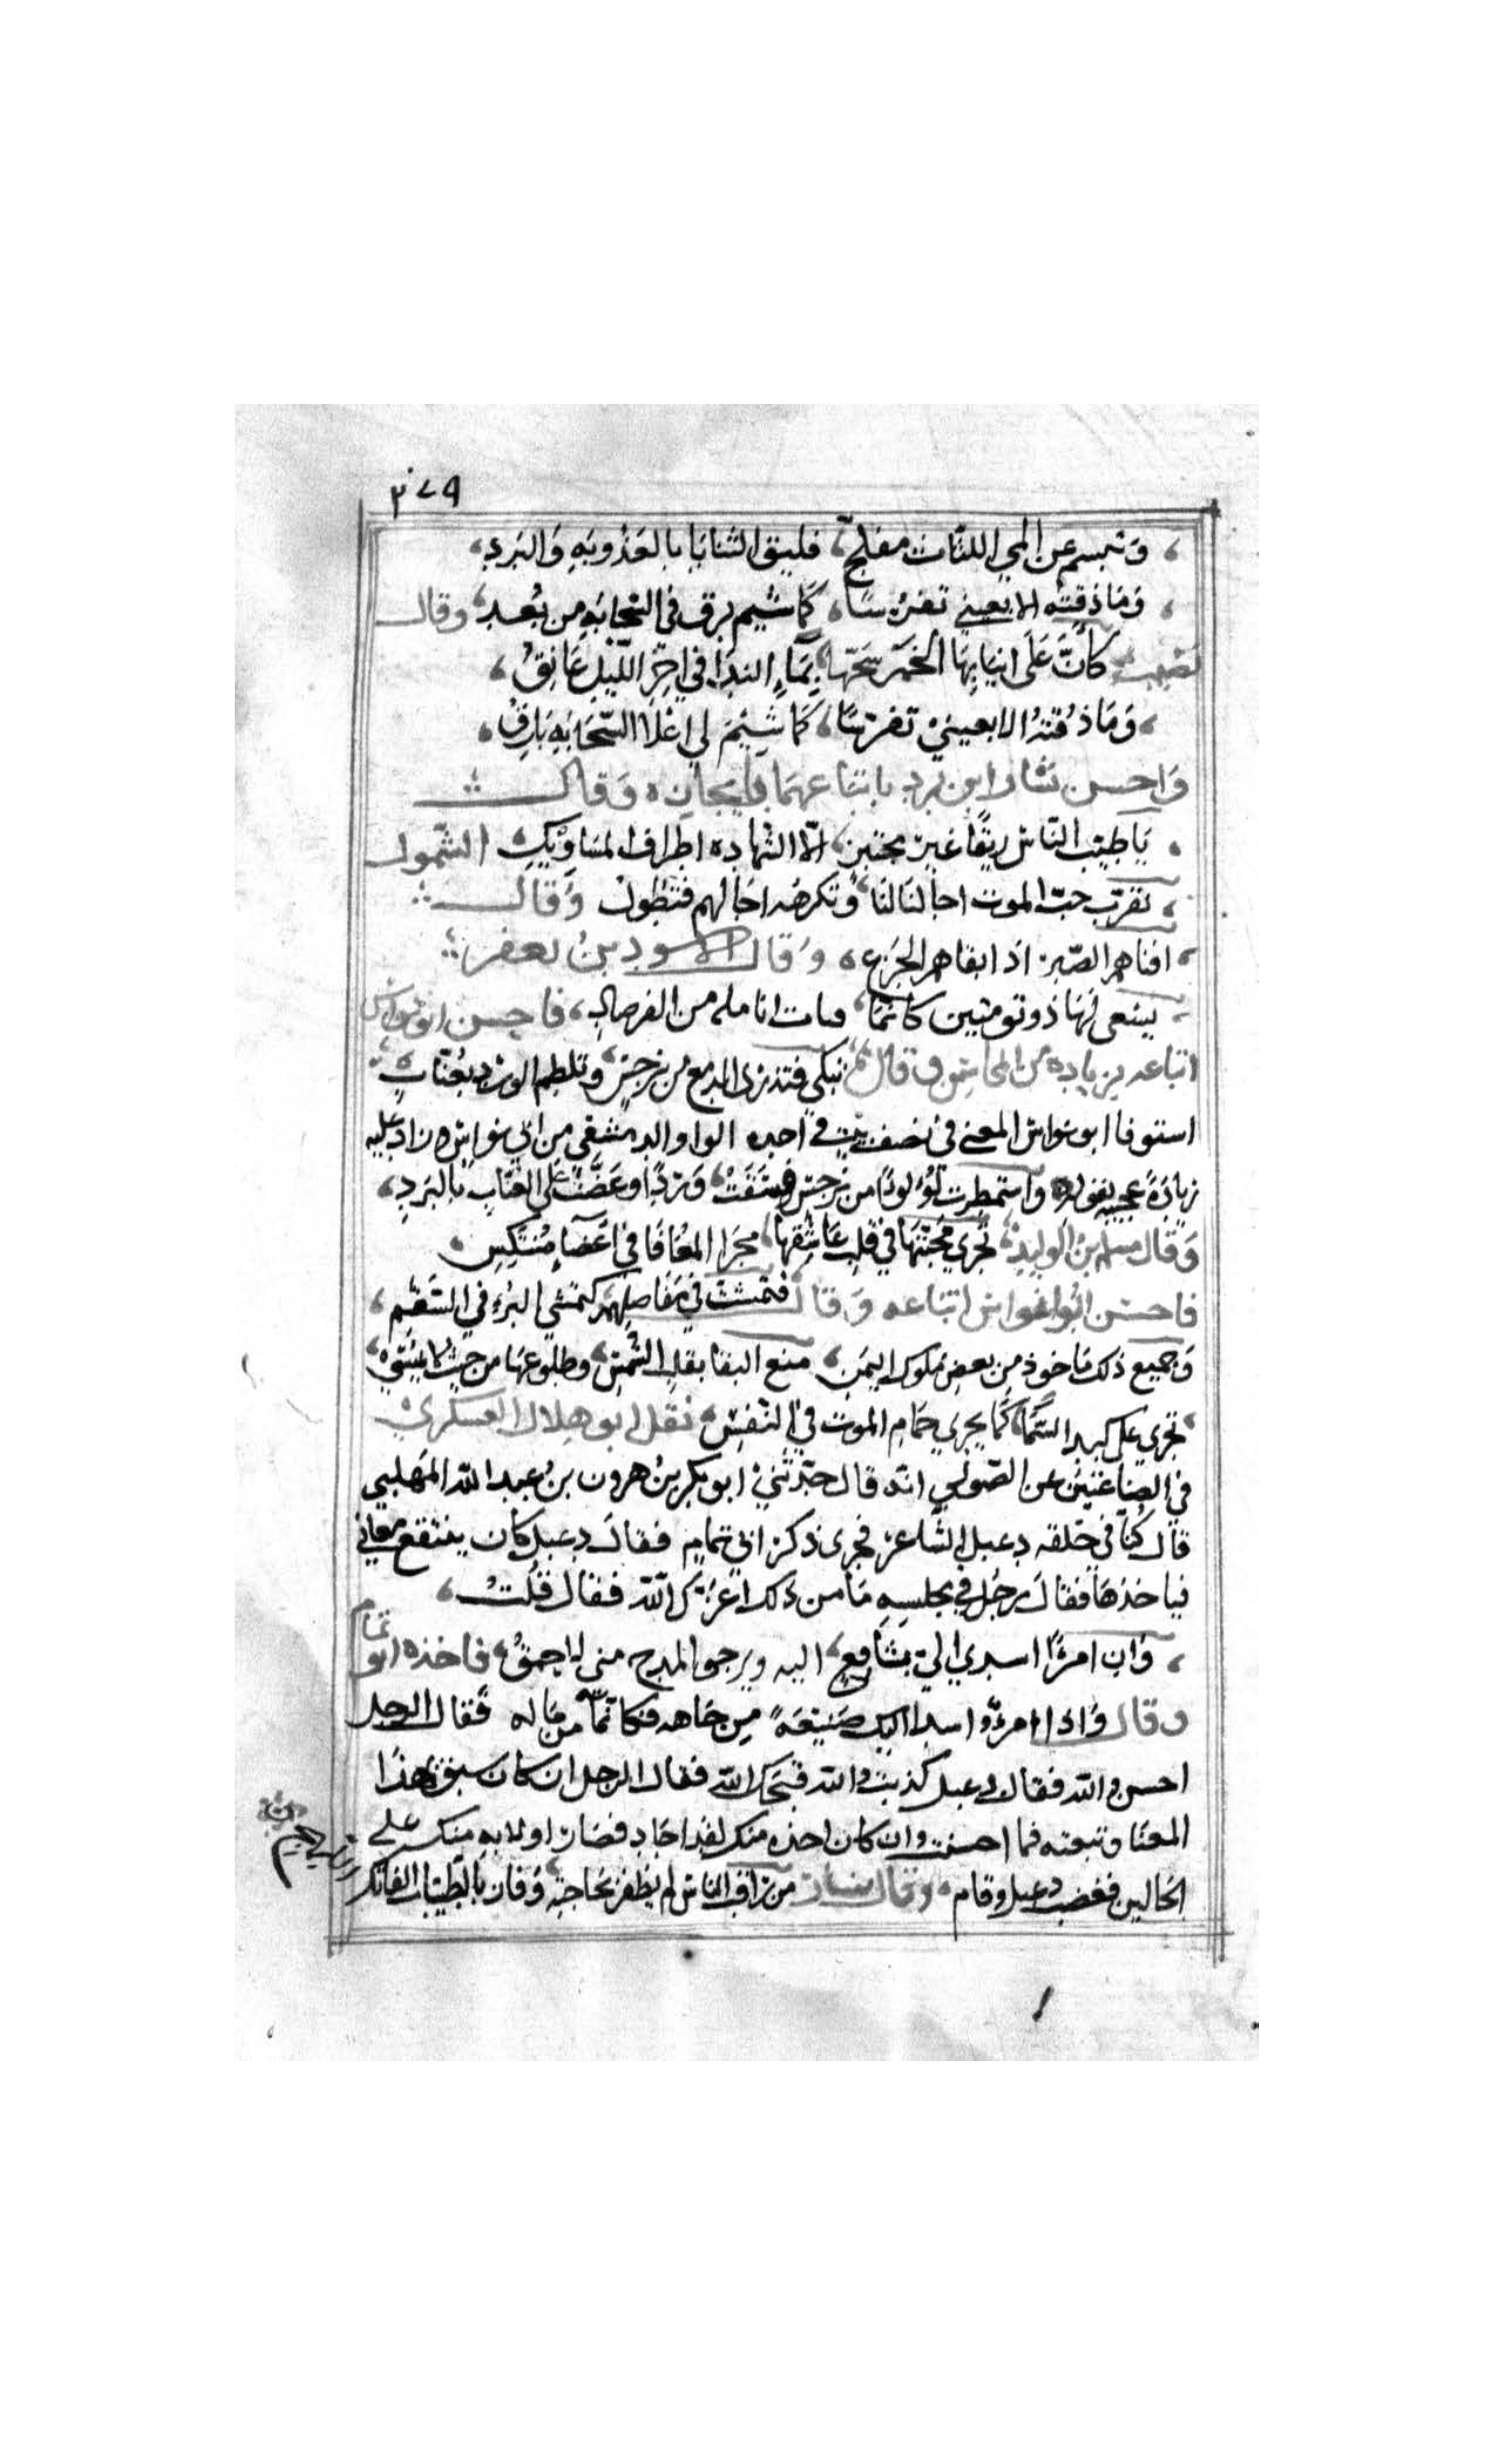 ٣٧٩
وتبسم عن المي اللثات مفلج، فليق الثنايا بالعذوبه والبرد،
وما ذقته الا بعيني تفرسا، كما شيم برق في السحابه من بعد، وقال
نصيب كانَّ عَلَى انيابِهَا الخمر سَحّها، بِمَآءِ الندَا في اخِرِ اللّيْلِ عَانِقُ،
وَمَا ذُقتهُ الا بعينيْ تفرسًا، كَمَا شِيْمَ لي اعْلَا السَّحَابَهِ بَارِقُ،
وَاحسن بشار ابن برد باتباعهما وَقال
يَا طيبَ النّاس ريقًا غير مختبر، الّا الشهاده اطراف المسَاوِيْكِ، الشموك
تقرّب حبّ الموت اجالنا لنا، وتكرهه اجالهم فتطول وَقالـ
افناهم الصّبر اذ ابقاهم الجزع، وَقال الاسود بنُ يعفر
يسْعى بهَا ذو تومتين كانمَا، قنات انامله من الفرصاد، فاحسن ابو نواس
اتباعه بزياده من المحاسن وقال، تبكي فتذري الدمع من نرجس، وتلطم الورد بعُنّابِ،
استوفا ابو نواس المعنى في نصف بيت في احده الواوا الدمشقي من ابي نواس وزاد عليه
زيادةً عجيبه بقوله، واستمطرت لُؤلُوًا من نرجس فسَقَتْ، وَرْدًا وعَضَّتْ عَلَى العنّابِ بِالبَرَدِ،
وَقال مسلم بنُ الوليد، تجري محبتهَا في قلبِ عَاشِقِها، مجرَا المعُافَا في اعْضَآءِ مُنتكِسِ،
فاحسن ابُوا نواس اتباعه وَقال فتمشت في مَفاصِلِهم كتمشي البُرءِ في السَّقَمِ،
وَجميع ذلك مَاخوذ مِن بعضِ مُلوك اليمَنِ، منع البقا بقلب الشّمس، وطلوعهَا من حيثُ لا تمْسِي،
تجري على كبد السّمَا كَمَا يجري حمَام الموت في النّفسِ، نقل ابو هلال العسكري
في الصِناعتين عن الصّولي انّه قال حدّثني ابو بكر بنُ هرون بنُ عبد اللّه المهلبي
قال كُنّا في حَلقه دعبل الشّاعر فجرى ذكر ابي تمامٍ فقال دعبل كان يتتبع معاني
فياخذهَا فقال رجُل في مجلسِهِ مَا من ذلك اعَزّك اللّه فقال قُلتُ،
وَان امرءًا اسدي اليّ بشافِعٍ، اليه ويرجو المدح مني لاحمقُ، فاخذه ابو تمام
وقال وَاذا امرءٌ اسدا اليك صَنيعَهً مِن جَاهه فكانّمَا من مَاله فقال الرجل
احسن واللّه فقال دعبل كذبتَ واللّه قبّحك اللّه فقال الرجل ان كان سبق بهذا
المعنَا وتبعته فما احسنت وان كان اخذه منك لقد اجَاد فصَار اولا به منك على
الحالين فغضب دعبل وقام، وقال بشار من راقب الناس لم يظفر بحَاجته، وَفاز بالطيبات الفاتك